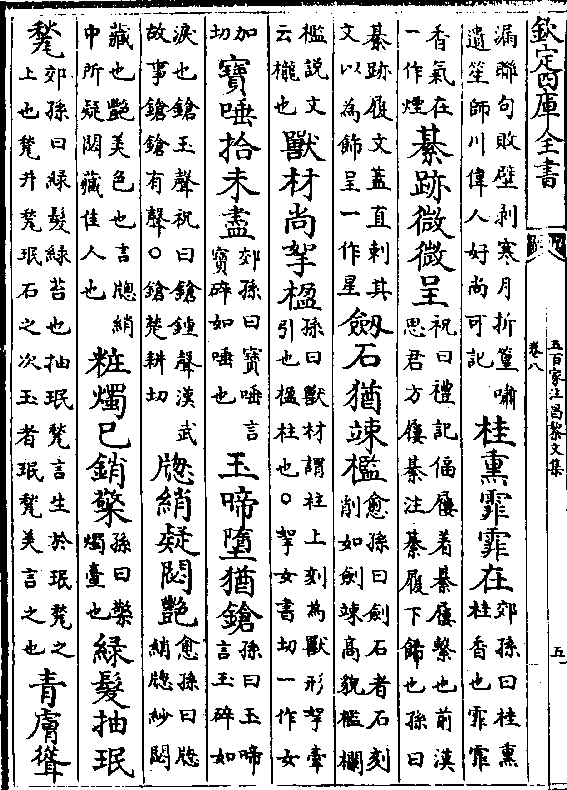 欽定四庫全書
五百家注昌黎文集
卷八
五
漏聯句敗壁剥寒月折篁嘯
遺笙師川偉人好尚可記
桂熏霏霏在
郊孫曰桂熏
桂香也霏霏
香氣在
一作煙
綦跡微微呈
祝曰禮記偪屨着綦屨繫也前漢
思君方屨綦注綦履下飾也孫曰
綦跡履文蓋直刺其
文以為飾呈一作星
劔石猶竦檻
愈孫曰劍石者石刻
削如劍竦高貌檻欄
檻說文
云櫳也
獸材尚拏楹
孫曰獸材謂柱上刻為獸形拏牽
引也楹柱也○拏女書切一作女
加
切
寶唾拾未盡
郊孫曰寶唾言
寶碎如唾也
玉啼墮猶鎗
孫曰玉啼
言玉碎如
淚也鎗玉聲祝曰鎗鍾聲漢武
故事鎗鎗有聲○鎗楚耕切
窻綃疑閟艶
愈孫曰窻
綃窻紗閟
藏也艶美色也言窻綃
中所疑閟藏佳人也
粧燭已銷檠
孫曰檠
燭臺也
綠髮抽珉
甃
郊孫曰綠髮綠苔也抽珉甃言生於珉甃之
上也甃井甃珉石之次玉者珉甃美言之也
青膚聳